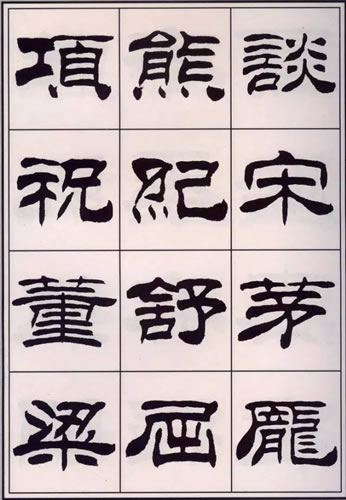 談宋茅龐
熊紀舒屈
項祝董梁